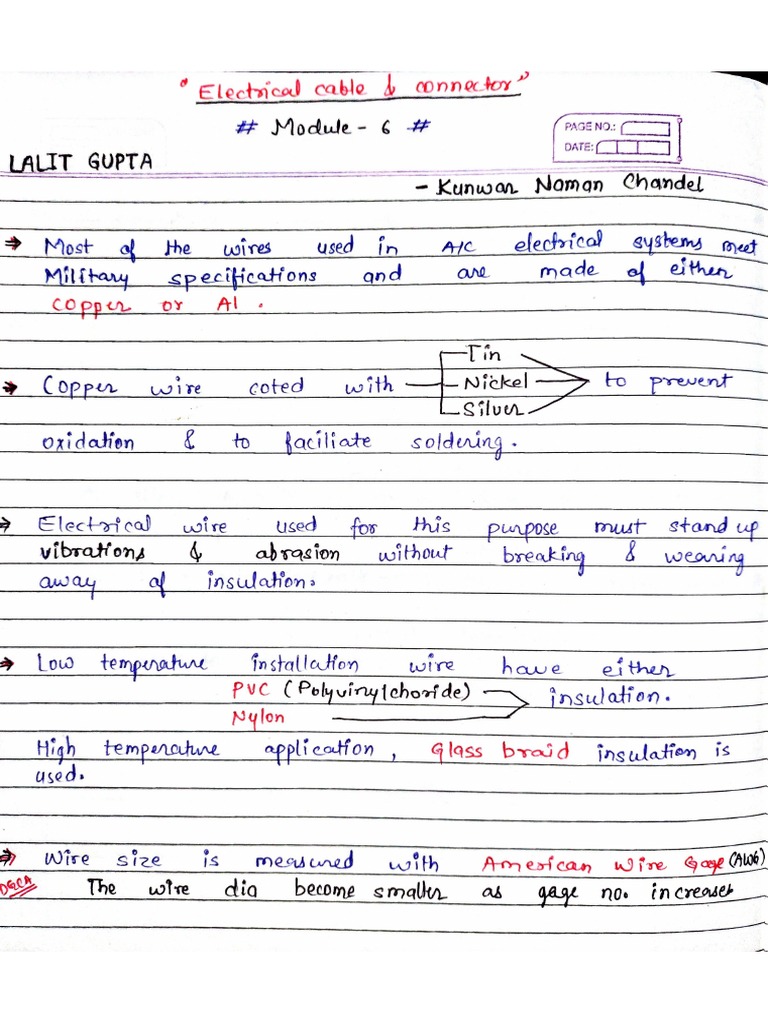 "Electrical cable & connector"
# Module - 6 #
PAGE NO.:
DATE:
LALIT GUPTA
- Kunwar Naman Chandel
⇒ Most of the wires used in A/C electrical systems meet
Military specifications and are made of either
Copper or Al.
⇒ Copper wire coted with Tin Nickel Silver to prevent
oxidation & to faciliate soldering.
⇒ Electrical wire used for this purpose must stand up
vibrations & abrasion without breaking & wearing
away of insulation.
⇒ Low temperature installation wire have either
PVC (Polyvinylchoride) insulation.
Nylon
High temperature application, Glass braid insulation is
used.
⇒ Wire size is measured with American Wire Gage (AWG)
DGCA The wire dia become smaller as gage no. increases